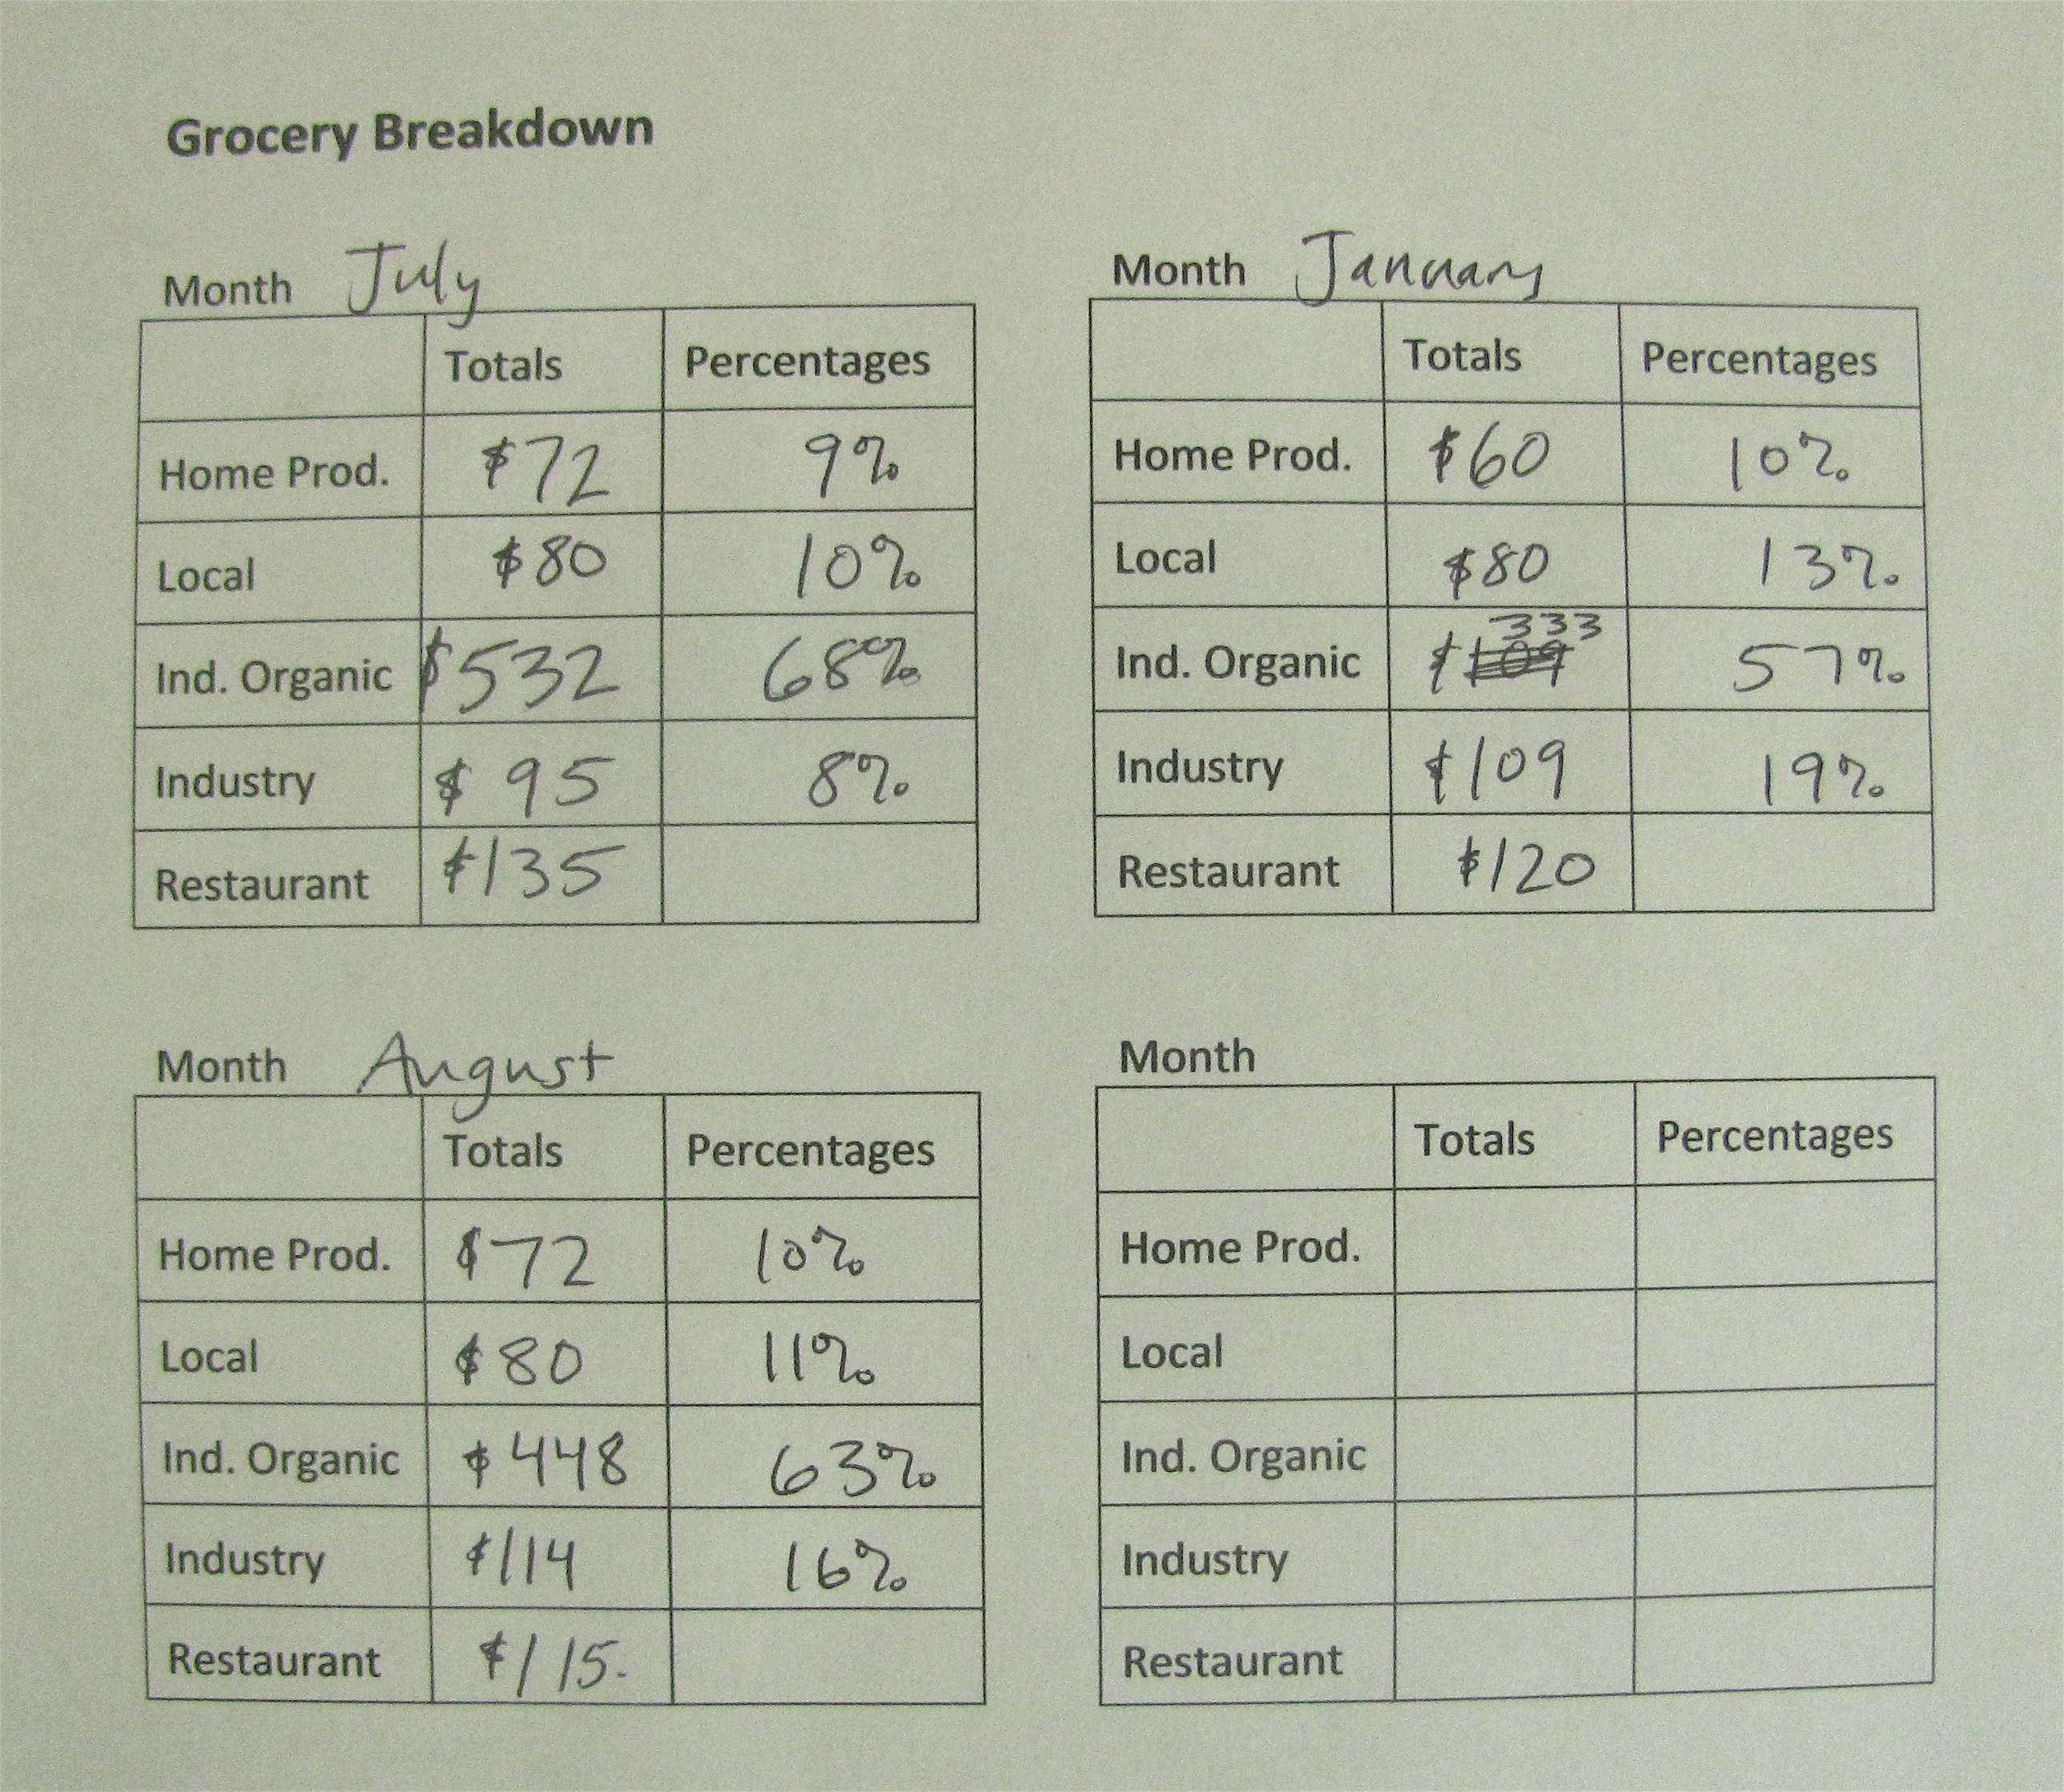 Grocery Breakdown
Month July
Totals Percentages
Home Prod. $72 9%
Local $80 10%
Ind. Organic $532 68%
Industry $ 95 8%
Restaurant $135
Month January
Totals Percentages
Home Prod. $60 10%
Local $80 13%
333
Ind. Organic $109 57%
Industry $109 19%
Restaurant $120
Month August
Totals Percentages
Home Prod. $72 10%
Local $80 11%
Ind. Organic $448 63%
Industry $114 16%
Restaurant $115.
Month
Totals Percentages
Home Prod.
Local
Ind. Organic
Industry
Restaurant